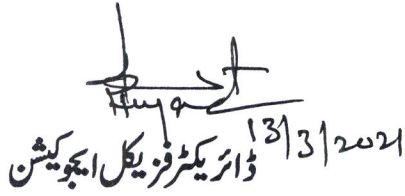 13/3/2021
ڈائریکٹر فزیکل ایجوکیشن